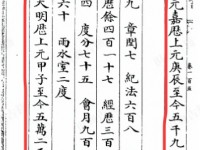 元嘉曆上元庚辰至今五千九
九　章閏七　紀法六百八
曆餘四百一十七　經曆三百
度　度分七十五　會月九百
六十　雨水室二度
大明曆上元甲子至今五萬二千